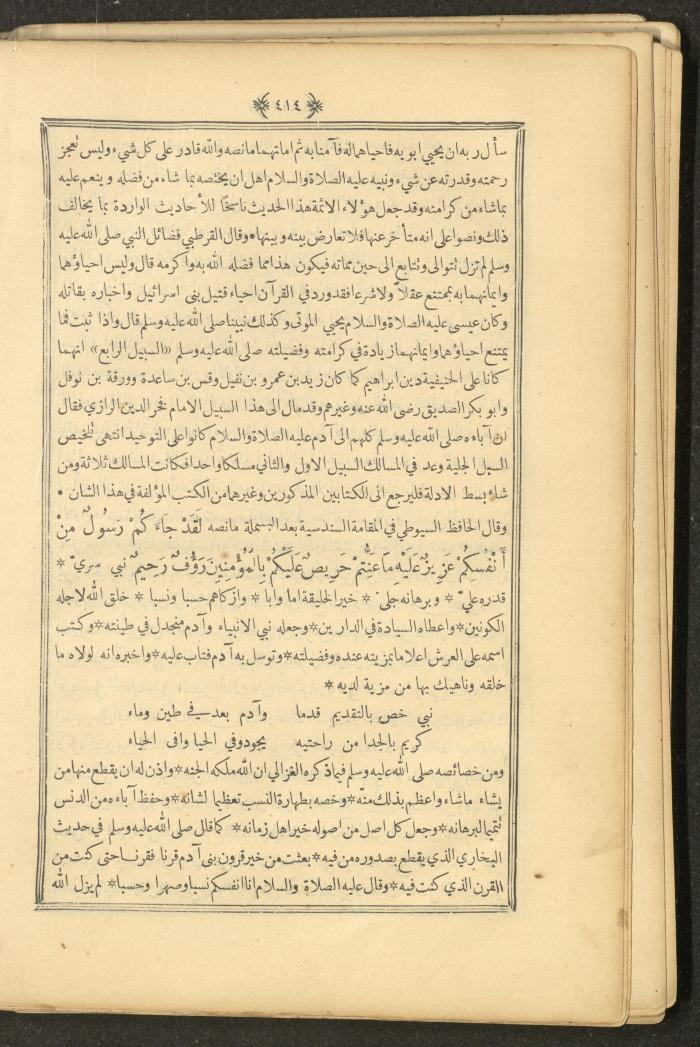 ٤١٤
سأل ربه ان يحيي ابويه فاحياهما له فآمنا به ثم اماتهما ما نصه والله قادر على كل شيء وليس تعجز
رحمته وقدرته عن شيء ونبيه عليه الصلاة والسلام اهل ان يختصه بما شاء من فضله وينعم عليه
بما شاء من كرامته وقد جعل هؤلاء الائمة هذا الحديث ناسخا للأحاديث الواردة بما يخالف
ذلك ونصوا على انه متأخر عنها فلا تعارض بينه وبينها * وقال القرطبي فضائل النبي صلى الله عليه
وسلم لم تزل نتوالى ونتابع الى حين مماته فيكون هذا مما فضله الله به واكرمه قال وليس احياؤهما
وايمانهما به بممتنع عقلاً ولا شرعا فقد ورد في القرآن احياء قتيل بنى اسرائيل واخباره بقاتله
وكان عيسى عليه الصلاة والسلام يحيي الموتى وكذلك نبينا صلى الله عليه وسلم قال واذا ثبت فما
يمتنع احياؤهما وايمانهما زيادة في كرامته وفضيلته صلى الله عليه وسلم «السبيل الرابع» انهما
كانا على الحنيفية دين ابراهيم كما كان زيد بن عمرو بن نفيل وقس بن ساعدة وورقة بن نوفل
وابو بكر الصديق رضى الله عنه وغيرهم وقد مال الى هذا السبيل الامام فخر الدين الرازي فقال
ان آباءه صلى الله عليه وسلم كلهم الى آدم عليه الصلاة والسلام كانوا على التوحيد انتهى تلخيص
السبل الجلية وعد في المسالك السبيل الاول والثاني مسلكا واحدا فكانت المسالك ثلاثة ومن
شاء بسط الادلة فليرجع الى الكتابين المذكورين وغيرهما من الكتب المؤلفة في هذا الشان •
وقال الحافظ السيوطي في المقامة السندسية بعد البسملة ما نصه لَقَدْ جَاءَ كُمْ رَسُولٌ مِنْ
أَنْفُسِكُمْ عَزِيزٌ عَلَيْهِ مَا عَنِتُّمْ حَرِيصٌ عَلَيْكُمْ بِالْمُؤْمِنِينَ رَؤُفٌ رَحِيمٌ نبي سريّ *
قدره عليّ * وبرهانه جليّ * خير الخليقة اما وابا * وازكاهم حسبا ونسبا * خلق الله لاجله
الكونين * واعطاه السيادة في الدارين * وجعله نبي الانبياء وآدم منجدل في طينته * وكتب
اسمه على العرش اعلاما بمزيته عنده وفضيلته * وتوسل به آدم فتاب عليه * واخبره انه لولاه ما
خلقه وناهيك بها من مزية لديه *
نبي خص بالتقديم قدما وآدم بعد في طين وماء
كريم بالجدا من راحتيه يجود وفي الحيا وافى الحياء
ومن خصائصه صلى الله عليه وسلم فيما ذكره الغزالي ان الله ملكه الجنه * واذن له ان يقطع منها من
يشاء ما شاء واعظم بذلك منّه * وخصه بطهارة النسب تعظيما لشانه * وحفظ آباءه من الدنس
تتميما لبرهانه * وجعل كل اصل من اصوله خير اهل زمانه * كما قال صلى الله عليه وسلم في حديث
البخاري الذي يقطع بصدوره من فيه * بعثت من خير قرون بنى آدم قرنا فقرنا حتى كنت من
القرن الذي كنت فيه * وقال عليه الصلاة والسلام انا انفسكم نسبا وصهرا وحسبا * لم يزل الله